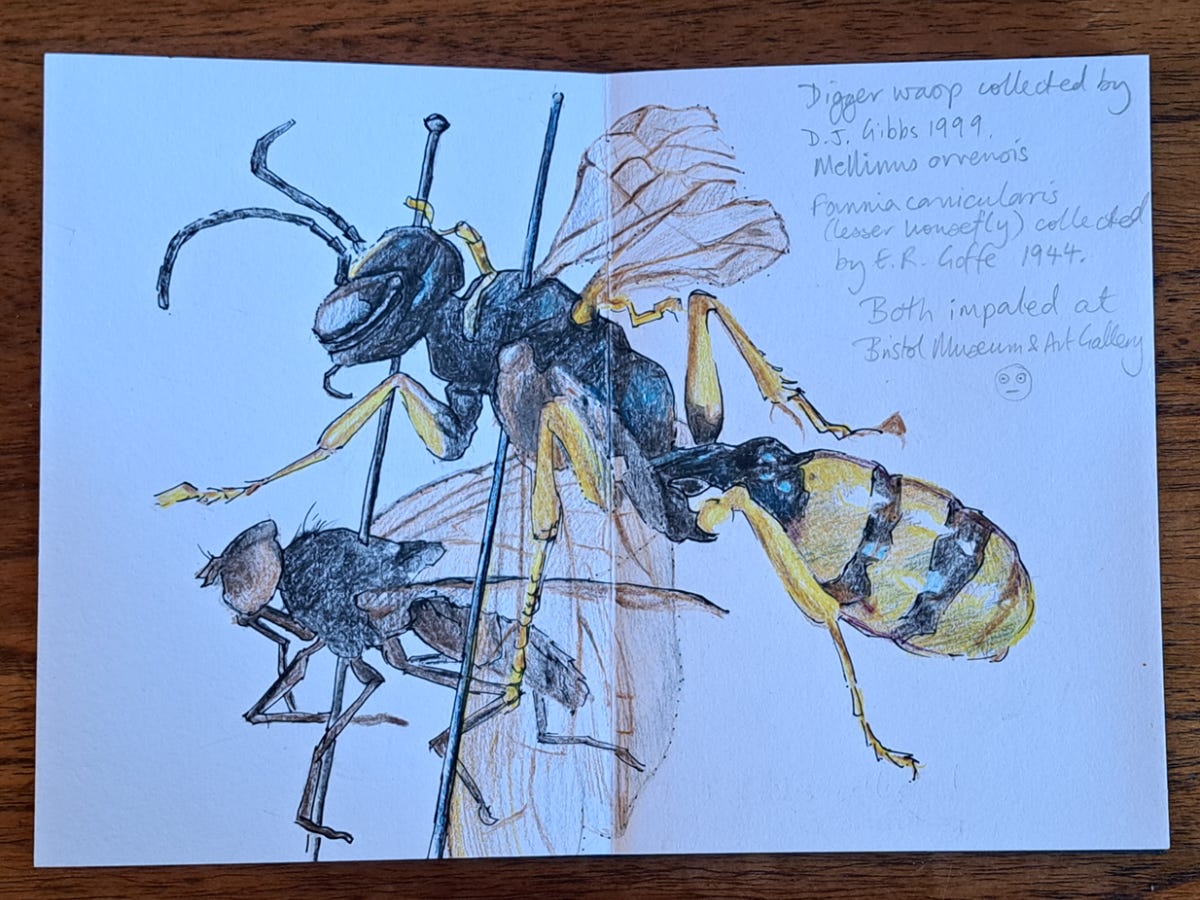 Digger wasp collected by
D.J. Gibbs 1999.
Mellinus arvensis
Fannia canicularis
(lesser housefly) collected
by E.R. Goffe 1944.
Both impaled at
Bristol Museum & Art Gallery